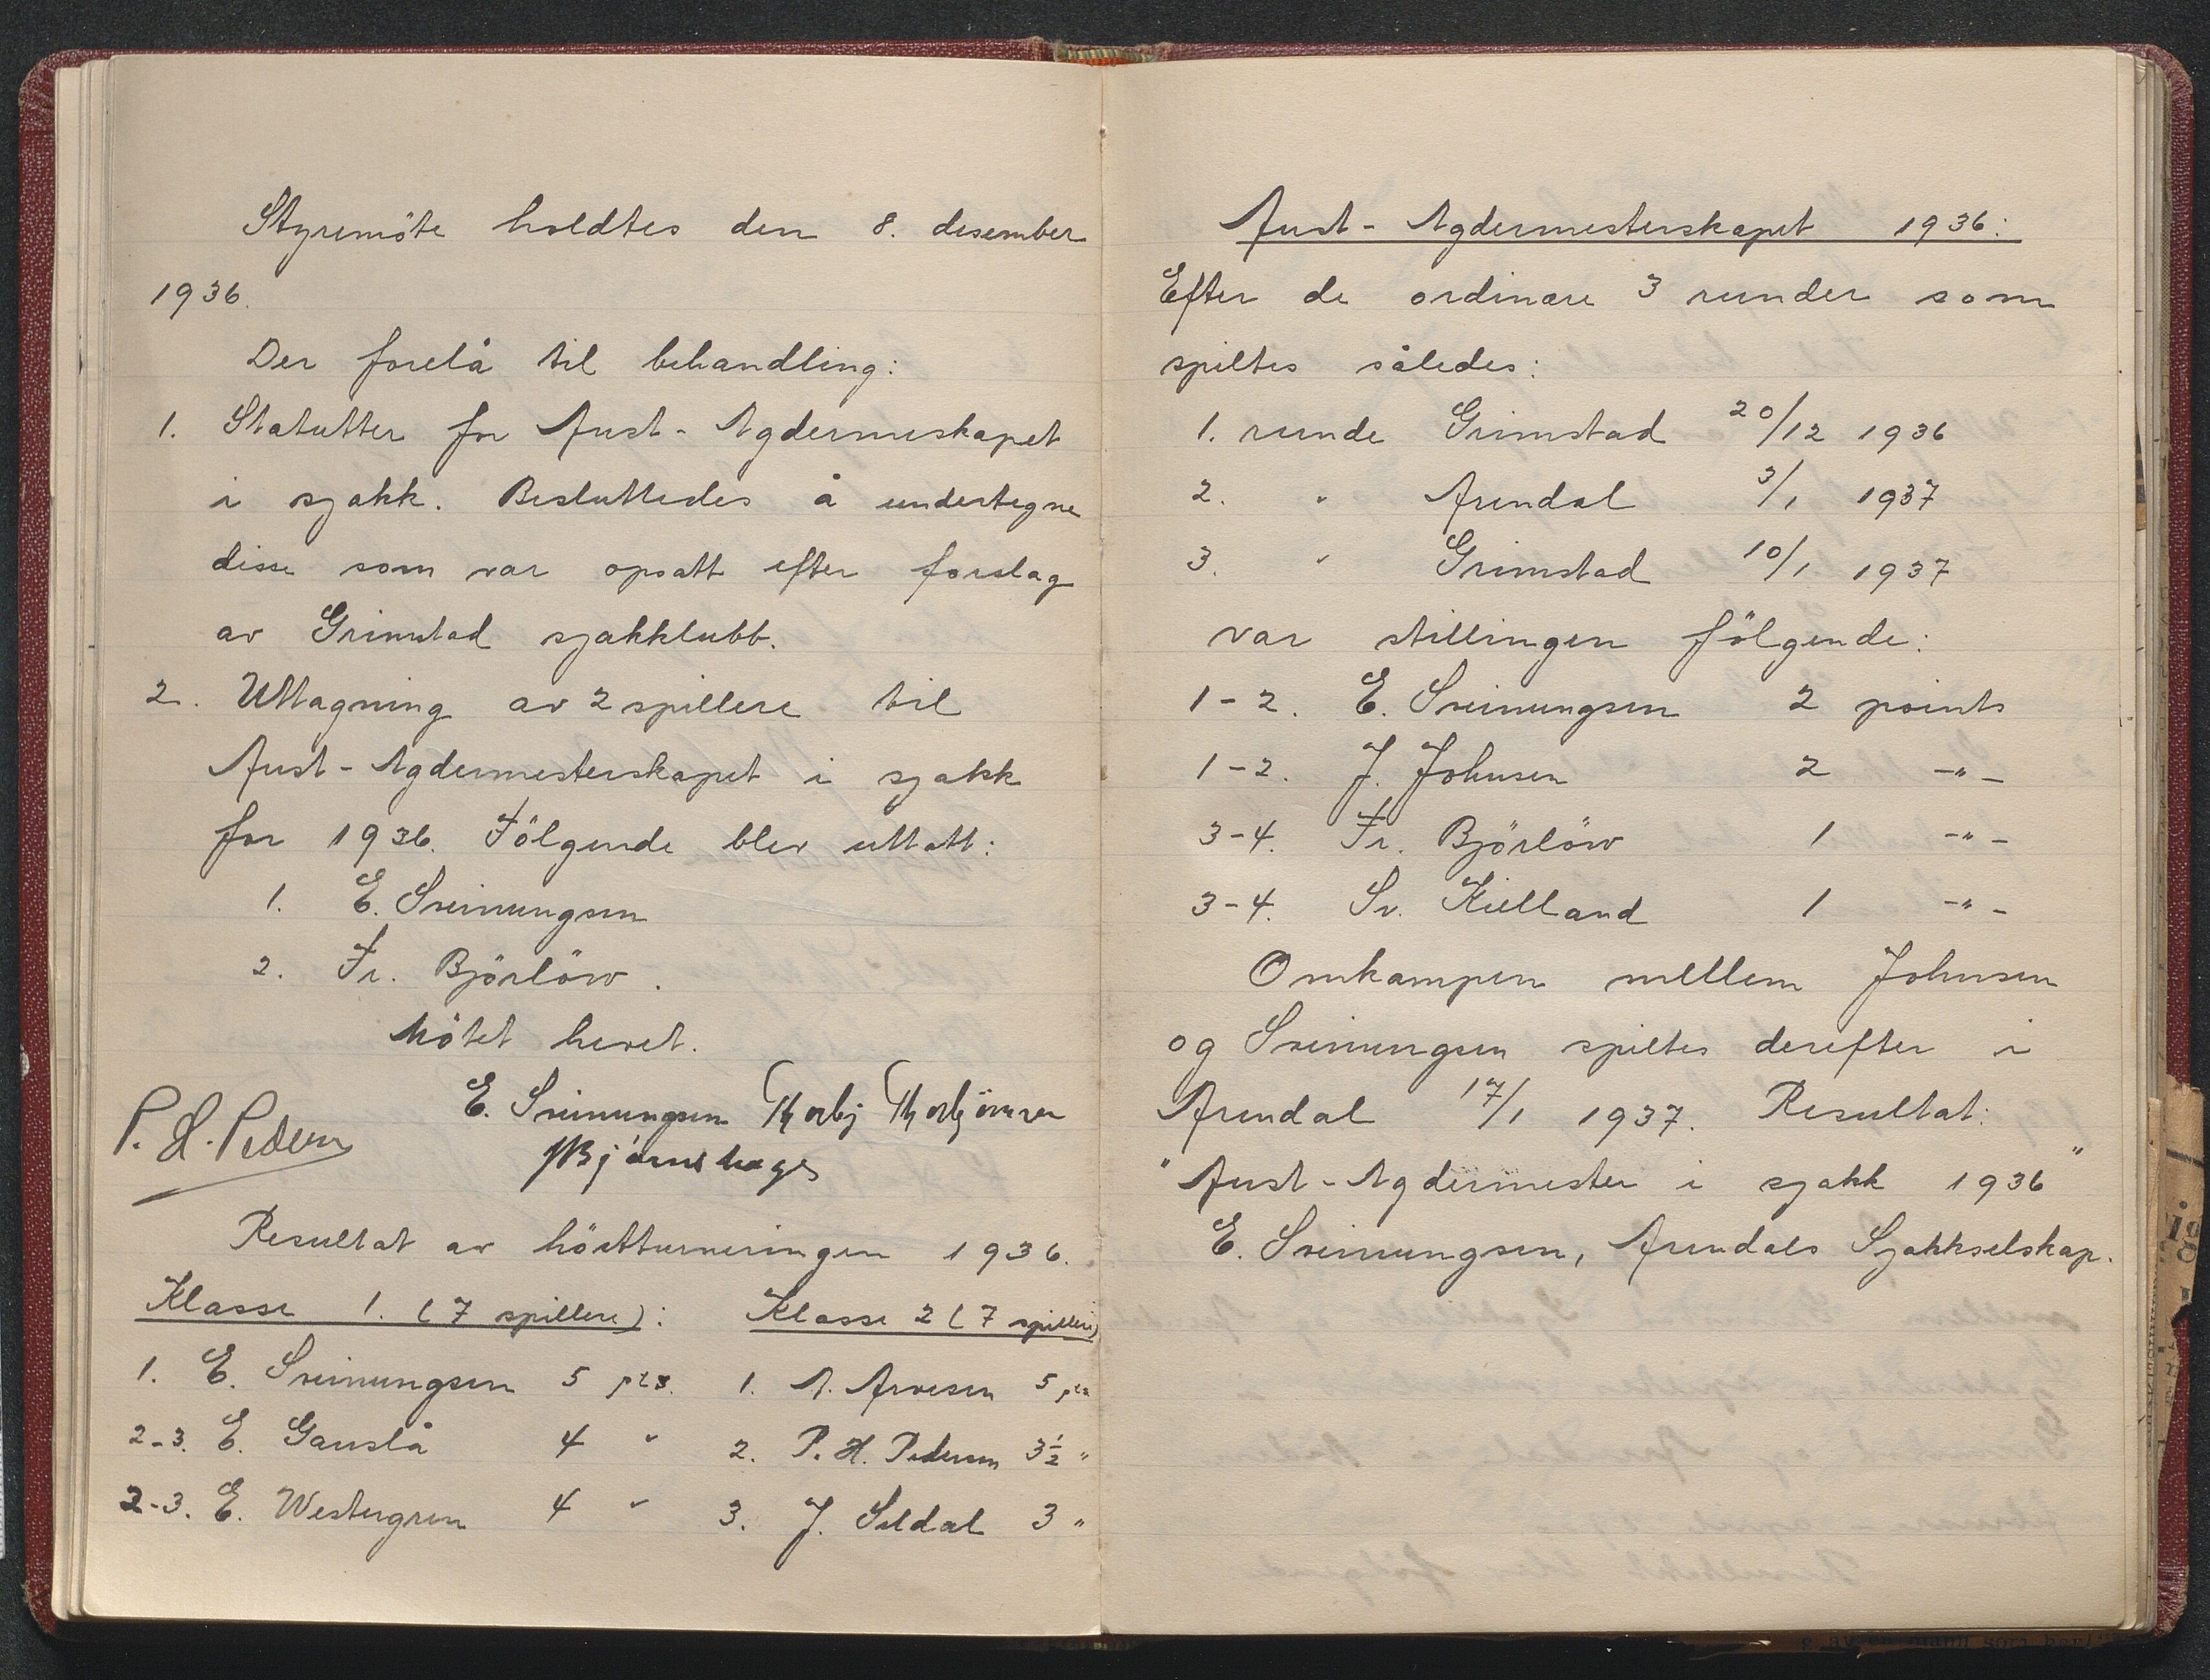 Styremöte holdtes den 8. desember
1936.
Der forelå til behandling:
1. Statutter for Aust-Agdermeskapet
i sjakk. Besluttedes å undertegne
disse som var opsatt efter forslag
av Grimstad sjakklubb.
2. Uttagning av 2 spillere til
Aust-Agdermesterskapet i sjakk
for 1936. Fölgende blev uttatt:
1. E. Sveinungsen
2. Fr. Björlöw.
Mötet hevet.
E. Sveinungsen Thorbj Thorbjörnsen
P. H. Pedersen
Resultat av höstturneringen 1936.
Klasse 1. (7 spillere): Klasse 2 (7 spillere)
1. E. Sveinungsen 5 pts. 1. A. Arvesen 5 pts
2-3. E. Gauslå 4 " 2. P. H. Pedersen 3½ "
2-3. E. Westergren 4 " 3. J. Seldal 3 "
Aust-Agdermesterskapet 1936:
Efter de ordinære 3 runder som
spiltes således:
1. runde Grimstad 20/12 1936
2. " Arendal 3/1 1937
3. " Grimstad 10/1 1937
var stillingen fölgende:
1-2. E. Sveinungsen 2 points
1-2. J. Johnsen 2 -"-
3-4. Fr. Björlöw 1 -"-
3-4. Sv. Kielland 1 -"-
Omkampen mellem Johnsen
og Sveinungsen spiltes derefter i
Arendal 17/1 1937. Resultat:
"Aust-Agdermester i sjakk 1936"
E. Sveinungsen, Arendals Sjakkselskap.